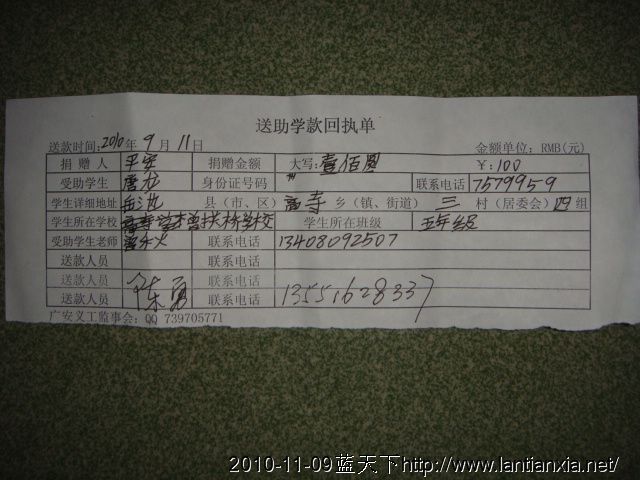 送助学款回执单
送款时间:2010年 9月 11日 金额单位:RMB(元)
捐赠人 平安 捐赠金额 大写:壹佰圆 ¥:100
受助学生 唐龙 身份证号码 联系电话 7579959
学生详细地址 岳池 县(市、区) 高寺 乡(镇、街道) 三 村(居委会) 四 组
学生所在学校 学生所在班级 五年级
受助学生老师 联系电话 13408092507
送款人员 联系电话
送款人员 联系电话
送款人员 陈勇 联系电话 13551628337
广安义工监事会: QQ 739705771
2010-11-09蓝天下http://www.lantianxia.net/